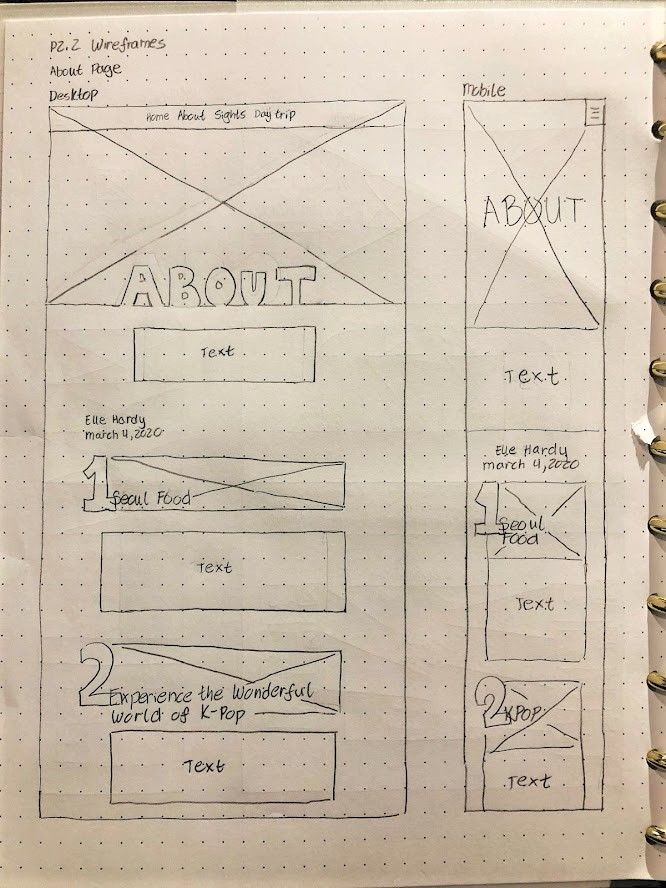 P2.2 Wireframes
About Page
Desktop
Home About Sights Daytrip
ABOUT
Text
Elle Hardy
march 4, 2020
1
Seoul Food
Text
2
Experience the Wonderful
World of K-Pop
Text
Mobile
ABOUT
Text
Elle Hardy
march 4, 2020
1
Seoul
Food
Text
2
KPOP
Text